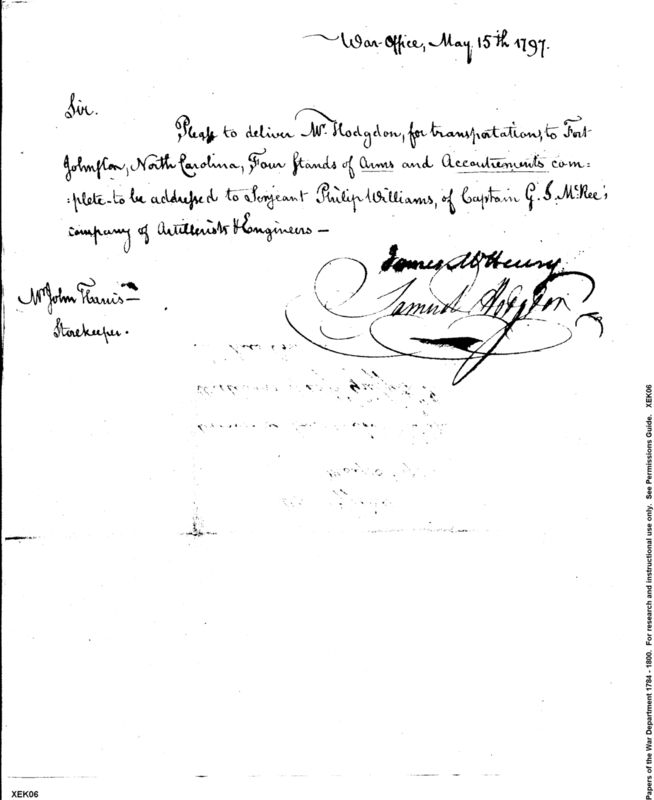 War-Office, May 15th 1797.
Sir.
Please to deliver Mr. Hodgdon, for transportation, to Fort
Johnston, North Carolina, Four Stands of Arms and Accoutrements com=
=plete - to be addressed to Serjeant Philip Williams, of Captain G. S. McRee's
company of Artillerists & Engineers —
James McHenry
Samuel Hodgdon
Mr John Harris —
Storekeeper.
Papers of the War Department 1784 - 1800. For research and instructional use only. See Permissions Guide. XEK06
XEK06